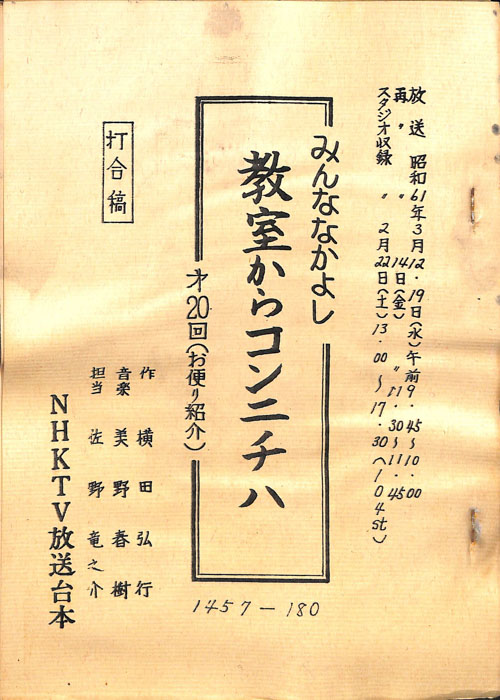 放送 昭和61年3月12・19日(水)午前9・45〜10・00
再〃 〃 14日(金) 〃 11・30〜11・45
スタジオ収録 〃 2月22日(土)13・00〜17・30(104st)
みんななかよし
教室からコンニチハ
才20回(お便り紹介)
打合稿
作 横田弘行
音楽 美野春樹
担当 佐野竜之介
NHKTV放送台本
1457-180